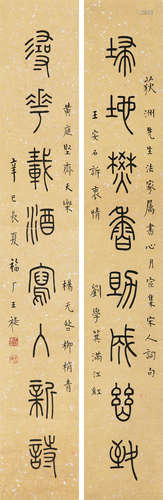 荻洲先生法家属書心月窗集宋人詞句
埽地焚香助成幽致
王安石訴衷情 劉學箕滿江紅
黃庭堅齊天樂 楊无咎柳梢青
尋花載酒寫入新詩
辛巳長夏福厂王禔